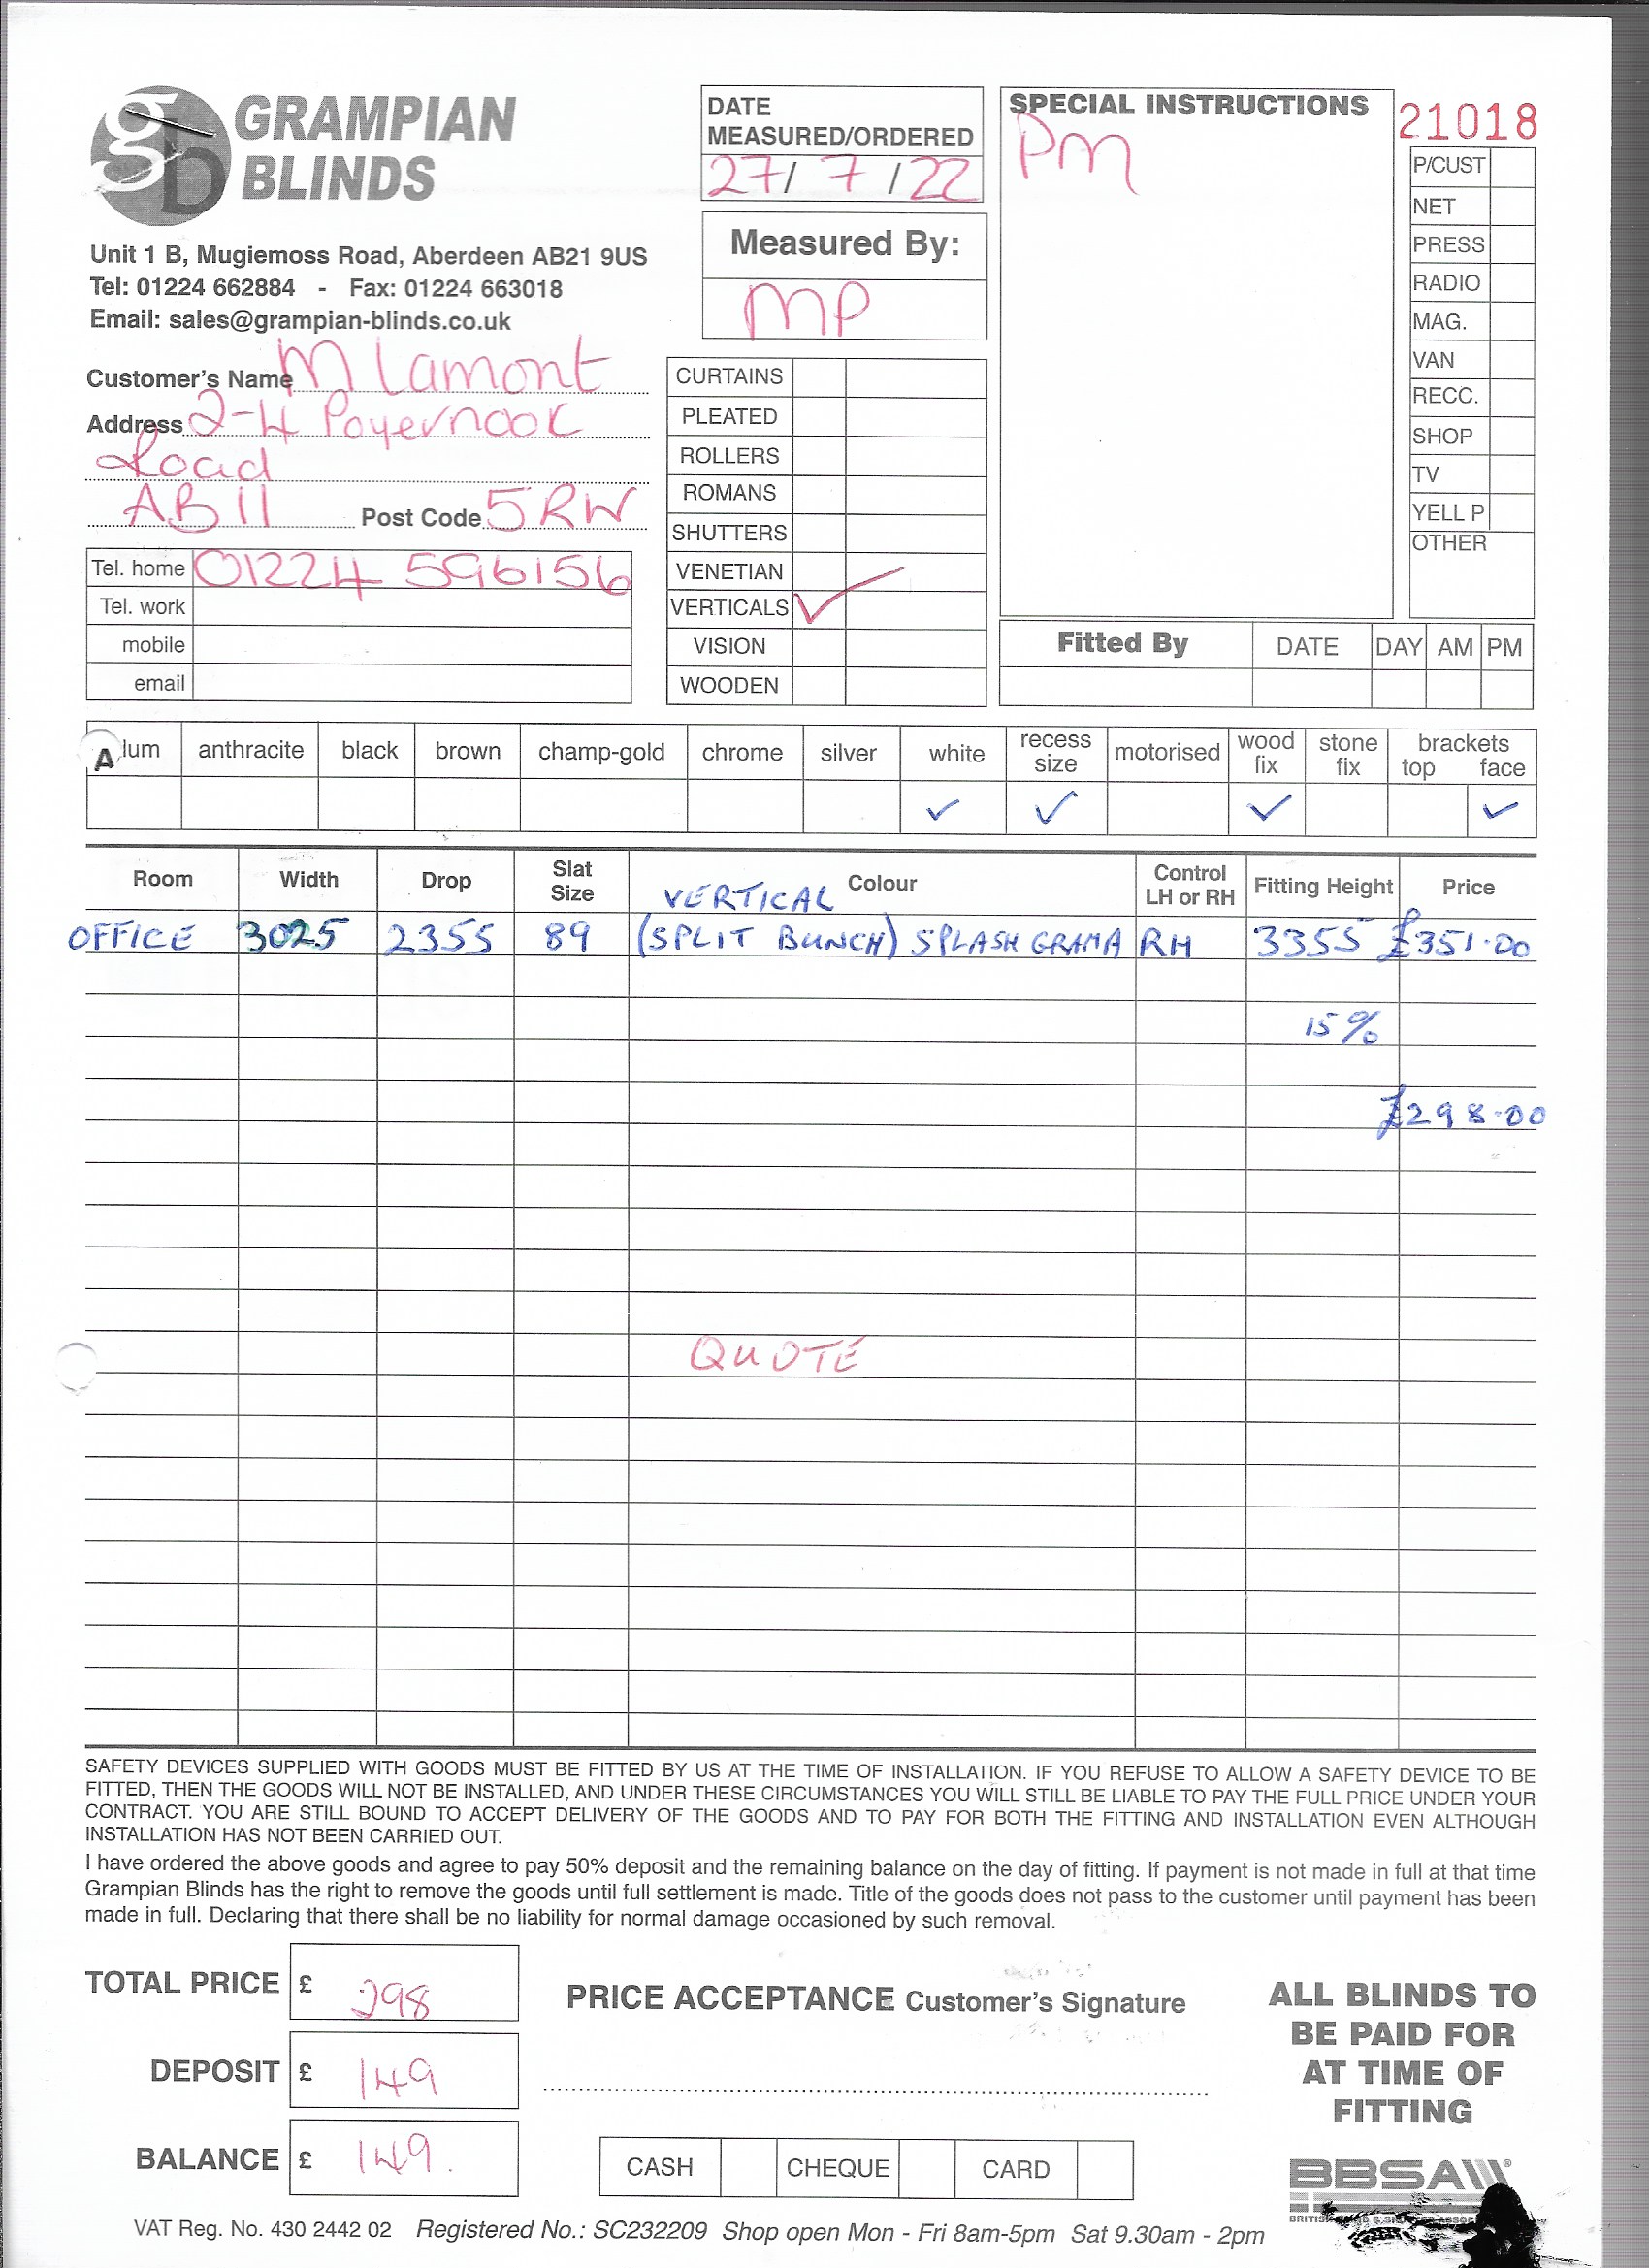 GRAMPIAN
BLINDS
Unit 1 B, Mugiemoss Road, Aberdeen AB21 9US
Tel: 01224 662884 - Fax: 01224 663018
Email: sales@grampian-blinds.co.uk
Customer's Name M Lamont
Address 2-4 Poyernook
Road
AB11 Post Code 5RW
Tel. home 01224 596156
Tel. work
mobile
email
DATE
MEASURED/ORDERED
27/ 7 /22
Measured By:
MP
CURTAINS
PLEATED
ROLLERS
ROMANS
SHUTTERS
VENETIAN
VERTICALS ✓
VISION
WOODEN
SPECIAL INSTRUCTIONS
PM
21018
P/CUST
NET
PRESS
RADIO
MAG.
VAN
RECC.
SHOP
TV
YELL P
OTHER
Fitted By DATE DAY AM PM
Alum anthracite black brown champ-gold chrome silver white recess size motorised wood fix stone fix brackets top face
✓ ✓ ✓ ✓
Room Width Drop Slat Size Colour Control LH or RH Fitting Height Price
VERTICAL
OFFICE 3025 2355 89 (SPLIT BUNCH) SPLASH GRAMA RH 3355 £351.00
15%
£298.00
QUOTE
SAFETY DEVICES SUPPLIED WITH GOODS MUST BE FITTED BY US AT THE TIME OF INSTALLATION. IF YOU REFUSE TO ALLOW A SAFETY DEVICE TO BE
FITTED, THEN THE GOODS WILL NOT BE INSTALLED, AND UNDER THESE CIRCUMSTANCES YOU WILL STILL BE LIABLE TO PAY THE FULL PRICE UNDER YOUR
CONTRACT. YOU ARE STILL BOUND TO ACCEPT DELIVERY OF THE GOODS AND TO PAY FOR BOTH THE FITTING AND INSTALLATION EVEN ALTHOUGH
INSTALLATION HAS NOT BEEN CARRIED OUT.
I have ordered the above goods and agree to pay 50% deposit and the remaining balance on the day of fitting. If payment is not made in full at that time
Grampian Blinds has the right to remove the goods until full settlement is made. Title of the goods does not pass to the customer until payment has been
made in full. Declaring that there shall be no liability for normal damage occasioned by such removal.
TOTAL PRICE £ 298
DEPOSIT £ 149
BALANCE £ 149.
PRICE ACCEPTANCE Customer's Signature
CASH CHEQUE CARD
ALL BLINDS TO
BE PAID FOR
AT TIME OF
FITTING
BBSA
VAT Reg. No. 430 2442 02 Registered No.: SC232209 Shop open Mon - Fri 8am-5pm Sat 9.30am - 2pm